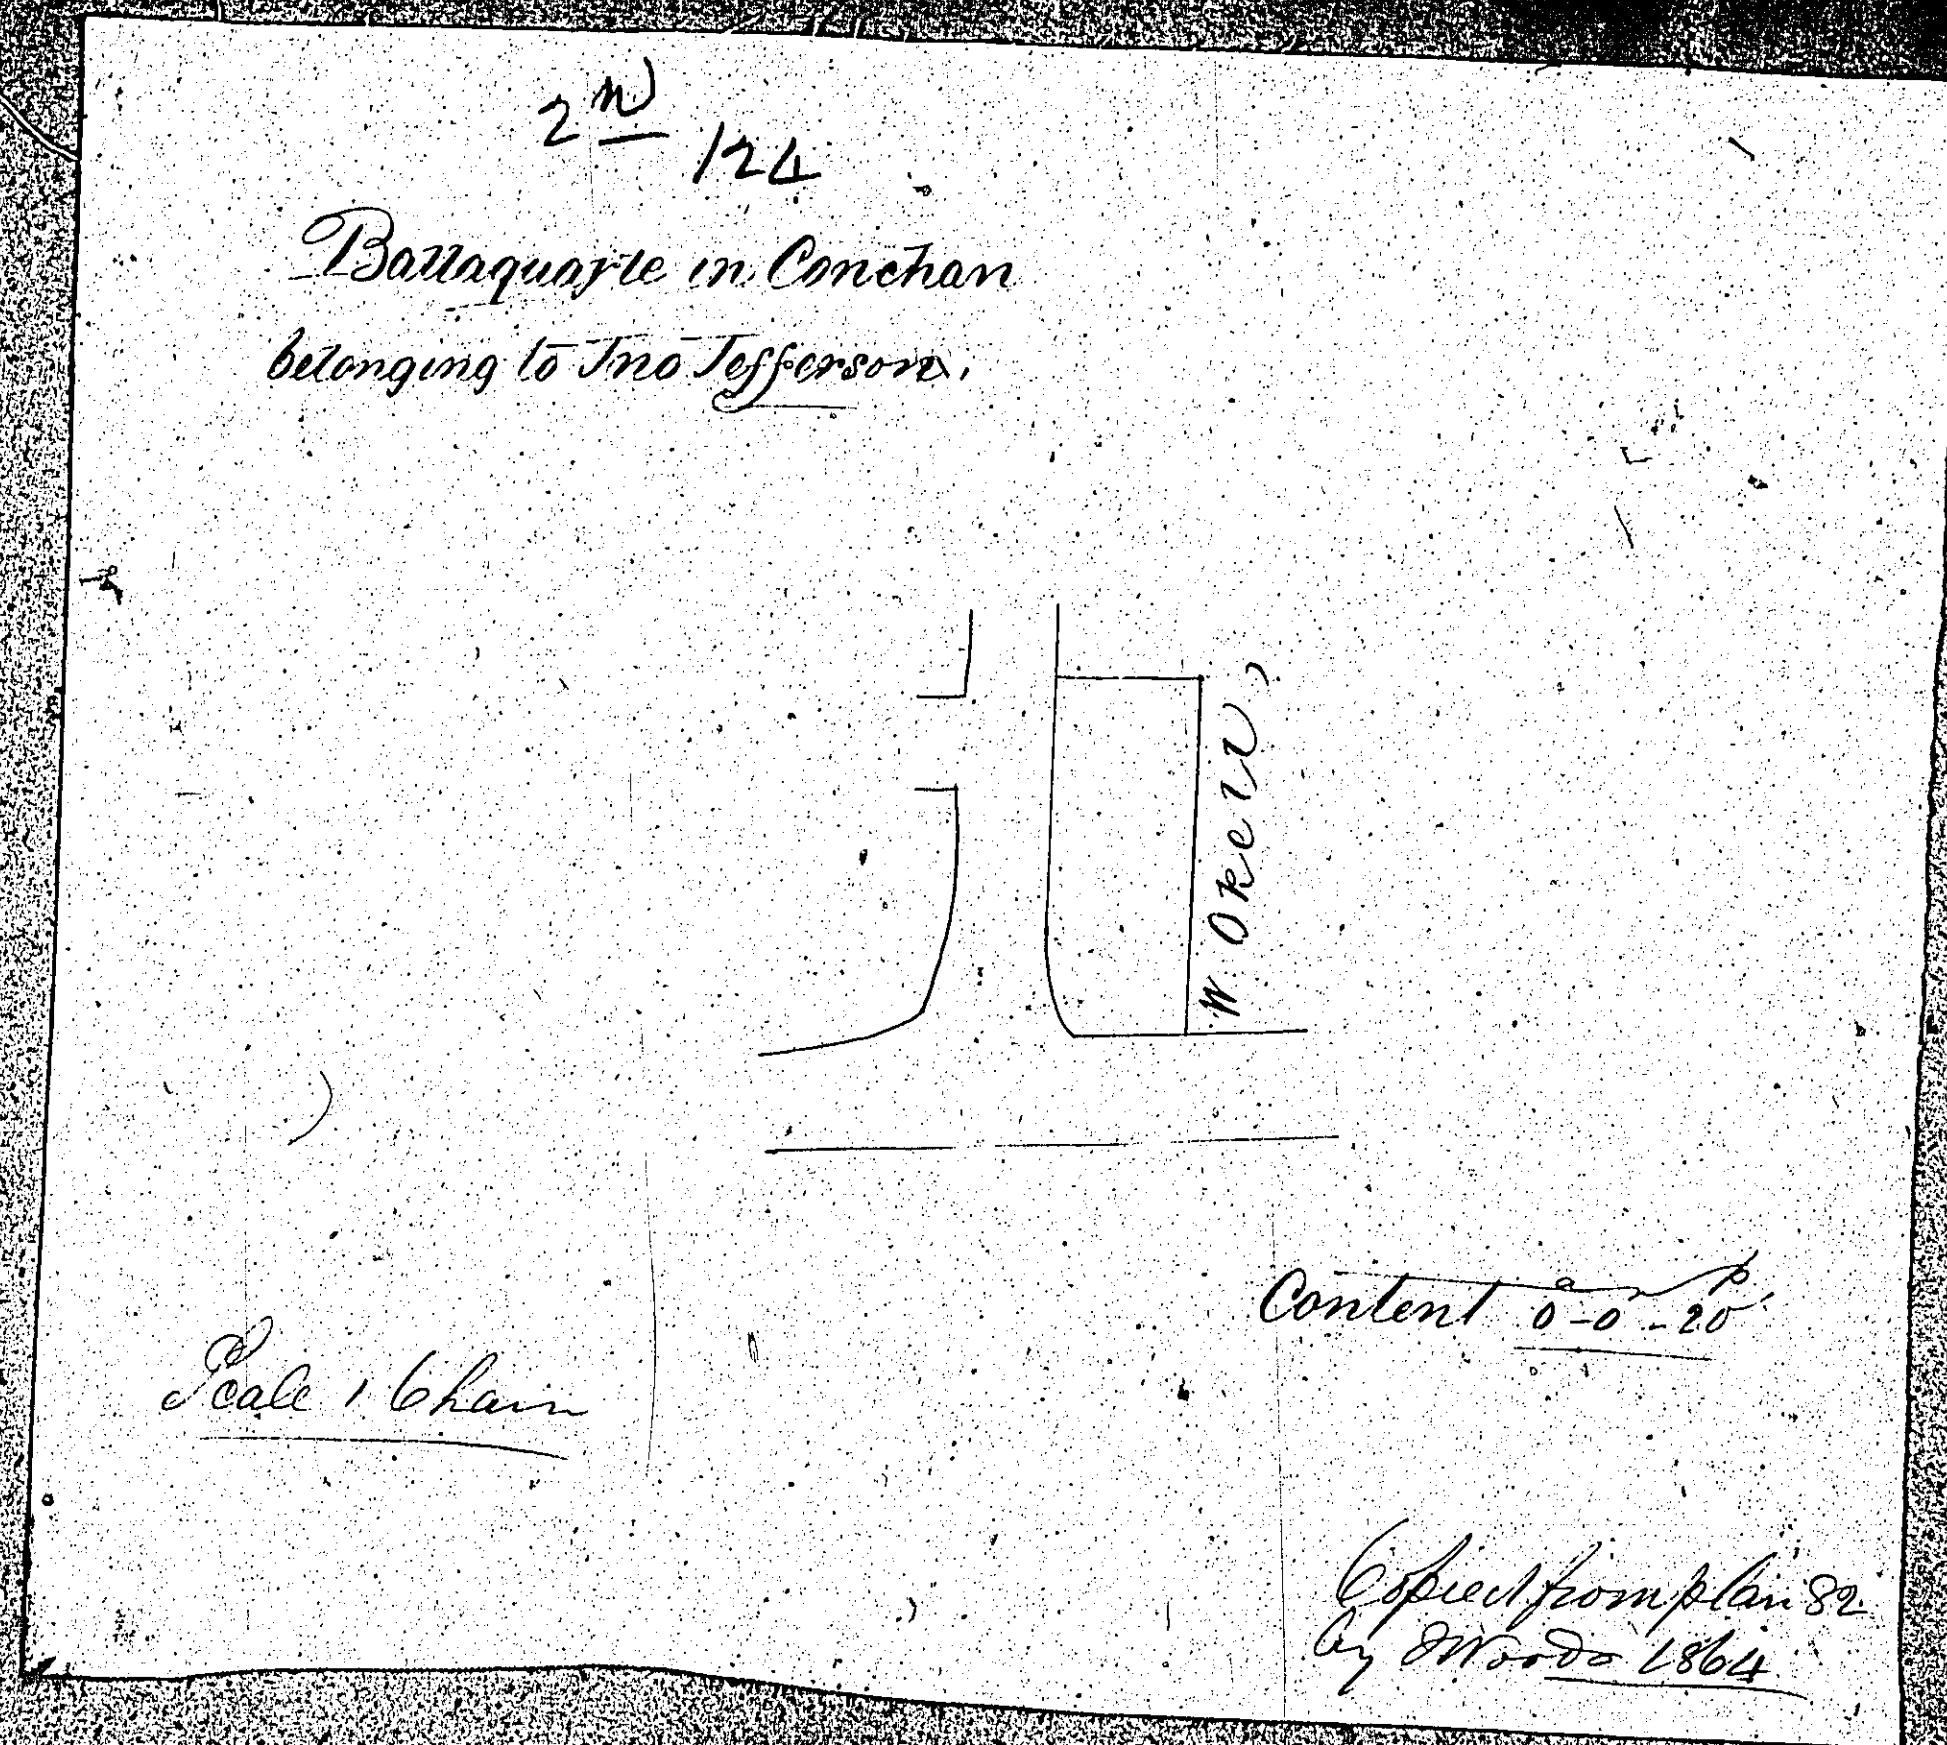 2nd
124
Ballaquayle in Conchan
belonging to Jno Jefferson.
W. Okell
Content a r p
0-0-20
Scale 1 Chain
Copied from plan 82
by JWoods 1864